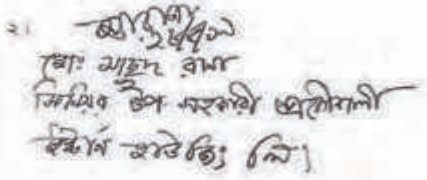 ২।
মোঃ মাছুদ রানা
সিনিয়র উপ সহকারী প্রকৌশলী
ইস্টার্ন হাউজিং লিঃ